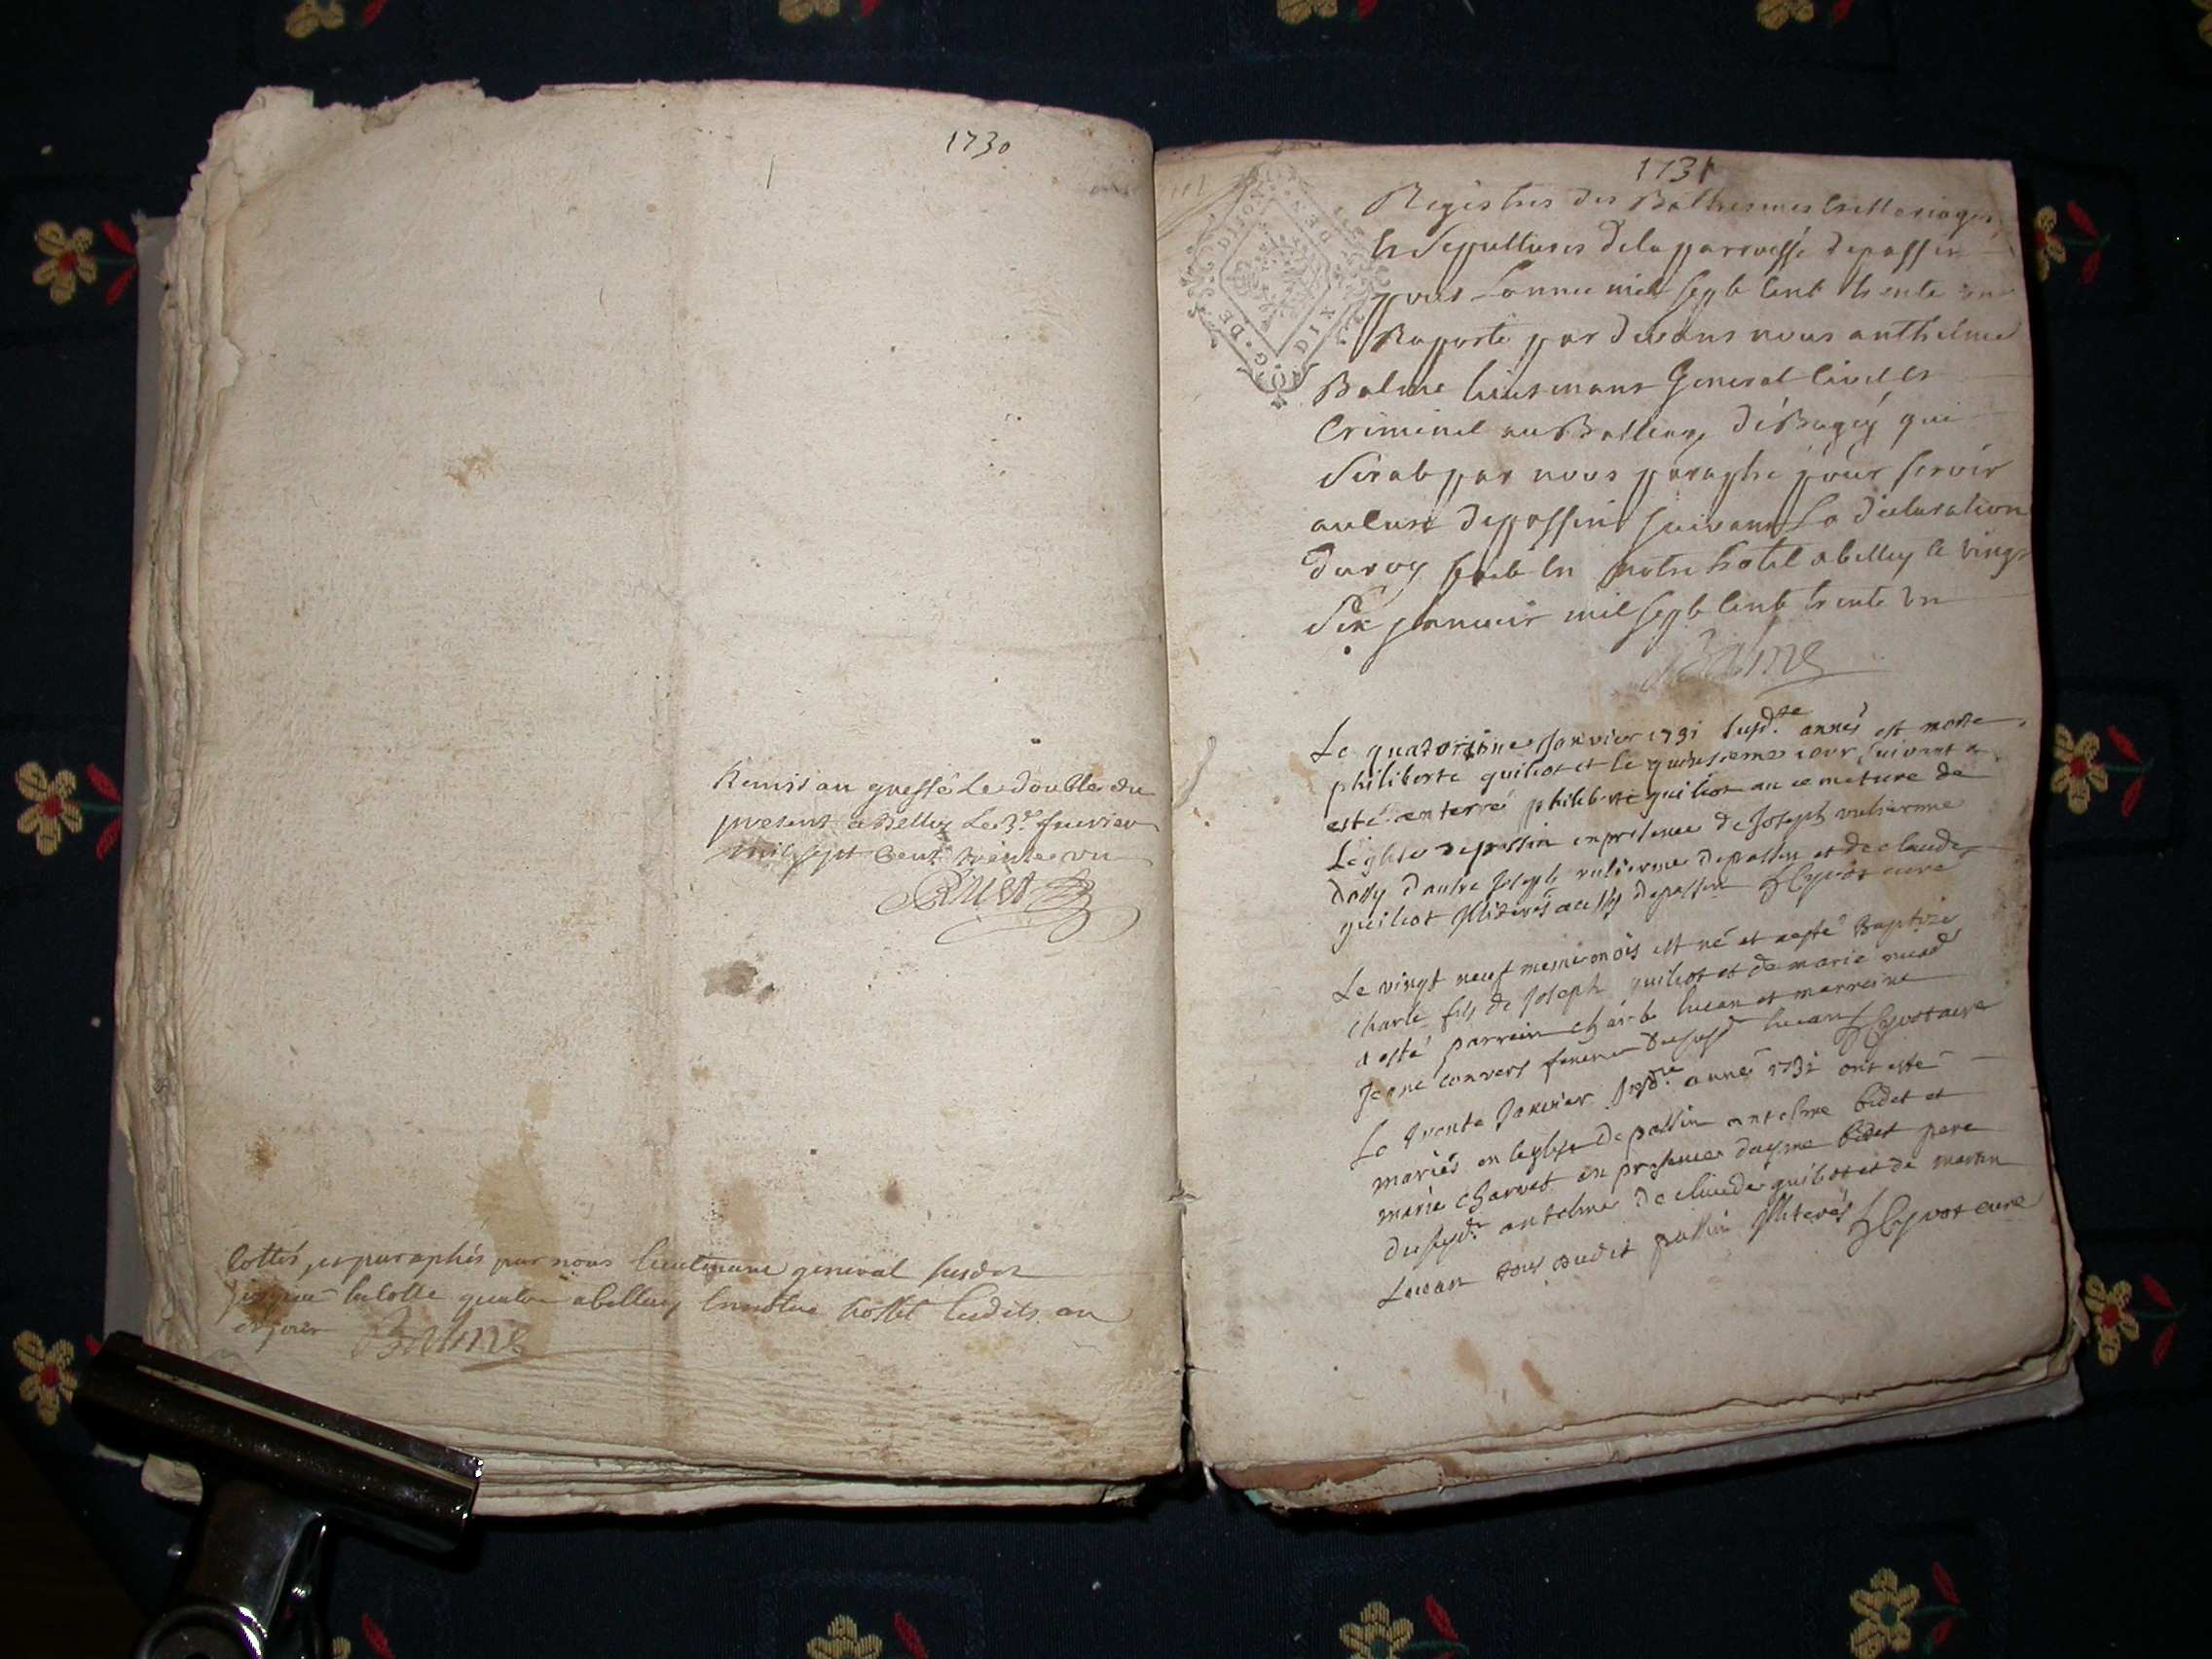 1730
Remis au greffe le double du
present a Belley le 3e fevrier
mil sept cent trente un
Cottés et paraphés par nous lieutenant general susdit
jusque la cotte quatre a belley en notre hostel lesdits an
et jour Balme
1731
Registres des Bathesmes Mariages
et Sepultures de la parroesse de passin
pour Lannee mil sept cent trente un
Raporté par devans nous anthelme
Balme lieutenant General Civil et
Criminel au Balliage de Bugey qui
Serat par nous paraphe pour servir
au curé de passin suivant La declaration
du roy fait en notre hotel a belley le vingt
Six janvier mil sept cent trente un
Balme
DE DIJON
G. DE
DIX
Le quatorsieme Janvier 1731 susd.te année est morte
philiberte guiliot et le quinsieme jour suivant a
esté enterré philiberte guiliot au cemetiere de
Leglise de passin en presence de Joseph vulierme
dautre Joseph vulierme de passin et de claude
guiliot Illiterés de passin Heyvot curé
Le vingt neuf meme mois est né et a esté Baptizé
charle fils de Joseph guiliot et de marie
a esté parrain charle lucan et marreine
Jeane convers femme du susd lucan Heyvot curé
Le trente Janvier susd.te année 1731 ont esté
mariés en leglise de passin antelme bidet et
marie charvet en presence dayme bidet pere
du susd.t antelme de claude guiliot et de martin
Lucan tous dudit passin Illiterés Heyvot curé